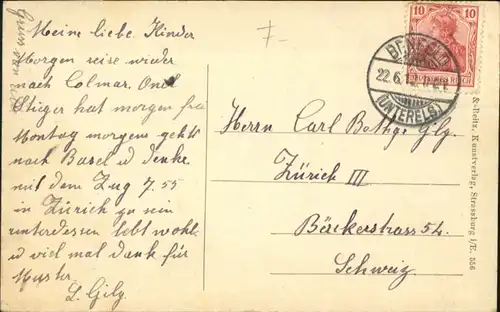 Meine liebe Kinder
Morgen reise wieder
nach Colmar. Onel
Stüger hat morgen frei
Montag morgens gehts
nach Basel u denke
mit dem Zug 7.55
in Zürich zu sein
unterdessen lebt wohl
u viel mal dank für
L. Gilg
Gruss von
10 10
DEUTSCHES REICH
22.6.
(UNTERELS.)
Herrn Carl Bothge Gilg.
Zürich III
Bäckerstrass 54.
Schweiz
Kunstverlag, Strassburg i/E. 556